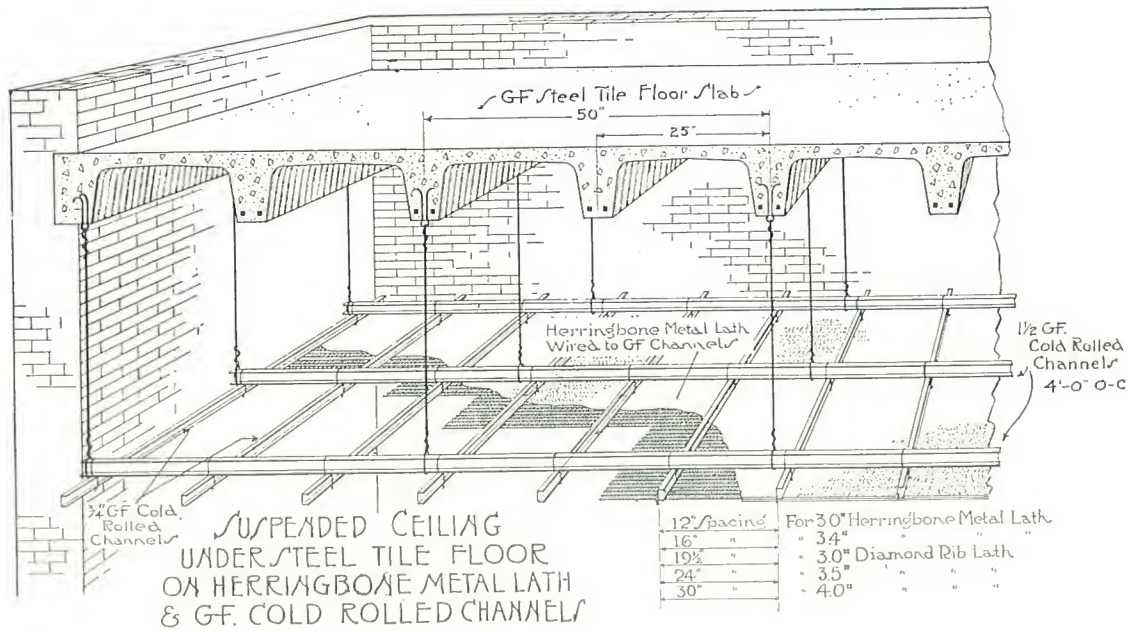 GF Steel Tile Floor Slab
50"
25"
Herringbone Metal Lath
Wired to GF Channels
1½ GF.
Cold Rolled
Channels
4'-0" O-C
¾" GF Cold
Rolled
Channels
SUSPENDED CEILING
UNDER STEEL TILE FLOOR
ON HERRINGBONE METAL LATH
& GF. COLD ROLLED CHANNELS
12" Spacing For 3.0# Herringbone Metal Lath
16" " " 3.4# " " "
19½" " " 3.0# Diamond Rib Lath
24" " " 3.5# " " "
30" " " 4.0# " " "